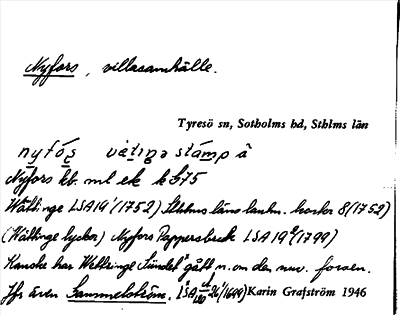 Nyfors, villasamhälle.
Tyresö sn, Sotholms hd, Sthlms län
nyfó̜s vátiŋə stámp å
Nyfors kb. ml ek b 75
Wättinge LSA 19 (1752) Sthlms läns lantm. kontor 8 (1752)
(Wättinge lyckor) Nyfors Pappersbruk LSA 19 (1799)
Kanske har Wettinge Sundet gått n. om den nuv. forsen.
Jfr även Sammelström. LSA 26 (1699) Karin Grafström 1946